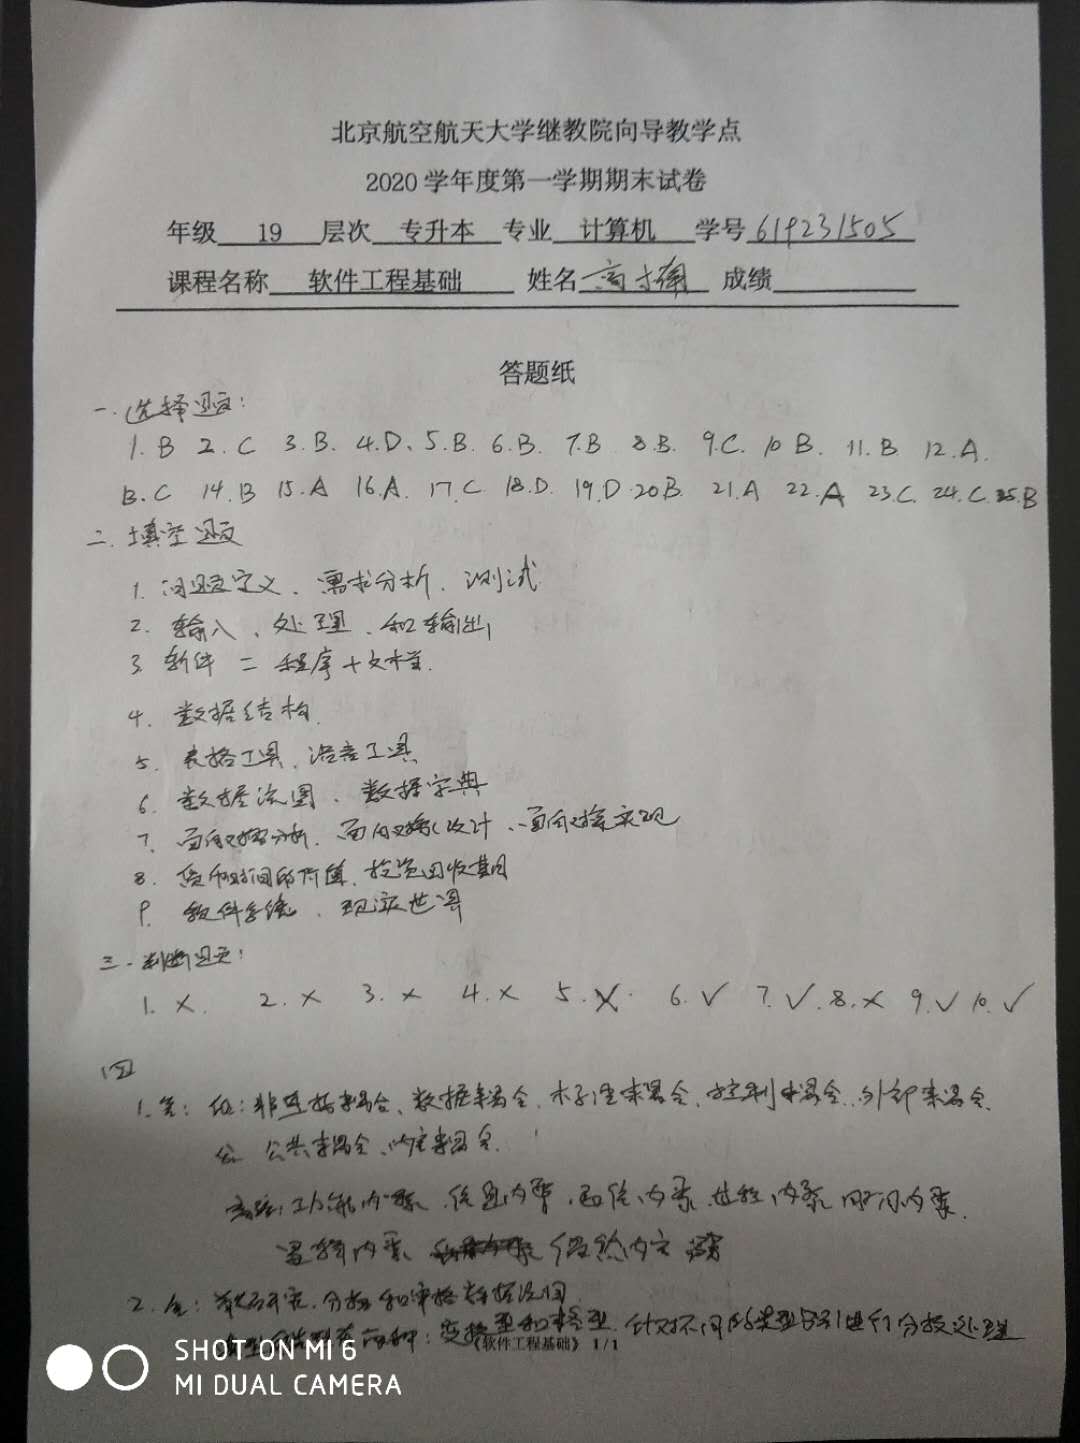 北京航空航天大学继教院向导教学点
2020 学年度第一学期期末试卷
年级 19 层次 专升本 专业 计算机 学号 619231505
课程名称 软件工程基础 姓名 高 成绩
答题纸
一.选择题:
1.B 2.C 3.B. 4.D、5.B. 6.B. 7.B 8.B. 9.C. 10 B. 11.B 12.A.
13.C 14.B 15.A 16.A. 17.C 18.D. 19.D 20B. 21.A 22.A 23.C. 24.C. 25.B
二.填空题
1. 问题定义、需求分析、测试
2. 输入、处理、和输出
3. 软件 = 程序+文档.
4. 数据结构.
5. 表格工具、语言工具
6. 数据流图、数据字典
7. 面向对象分析、面向对象设计、面向对象实现
8. 货币时间的价值、投资回收期
9. 软件系统、现实世界
三.判断题:
1. × 2. × 3. × 4. × 5. × 6. √ 7. √ 8. × 9. √ 10. √
四
1.答: 低:非直接耦合、数据耦合、标记耦合、控制耦合、外部耦合、
公共耦合、内容耦合.
高 功能内聚、信息内聚、通信内聚、过程内聚、时间内聚、
逻辑内聚
2.答: 研究、分析和审核数据流图
两种:变换型和事务型 针对不同的类型 进行分析处理
《软件工程基础》 1 / 1
SHOT ON MI 6
MI DUAL CAMERA